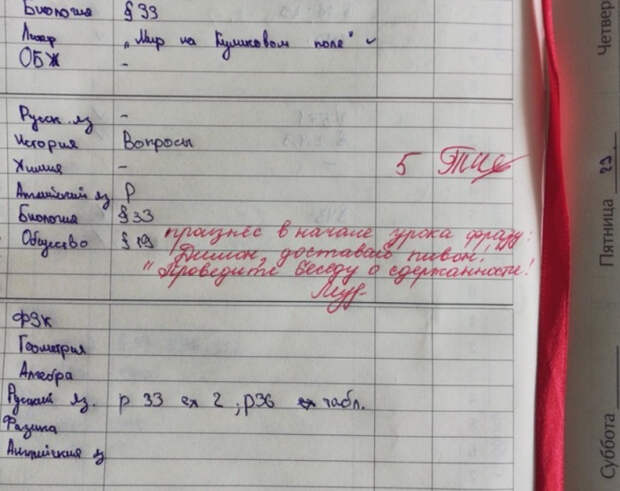 Биология § 33
Литер „Мир на Куликовом поле"
ОБЖ -
Четверг
Русск. яз -
История Вопросы
Химия - 5
Английский яз Р
Биология § 33
Общество § 19 произнёс в начале урока фразу:
"Димон, доставай пивон!"
Проведите беседу о сдержанности!
Пятница 23
ФЗК
Геометрия
Алгебра
Русский яз. р 33 сл 2, р36 табл.
Физика
Английский яз
Суббота